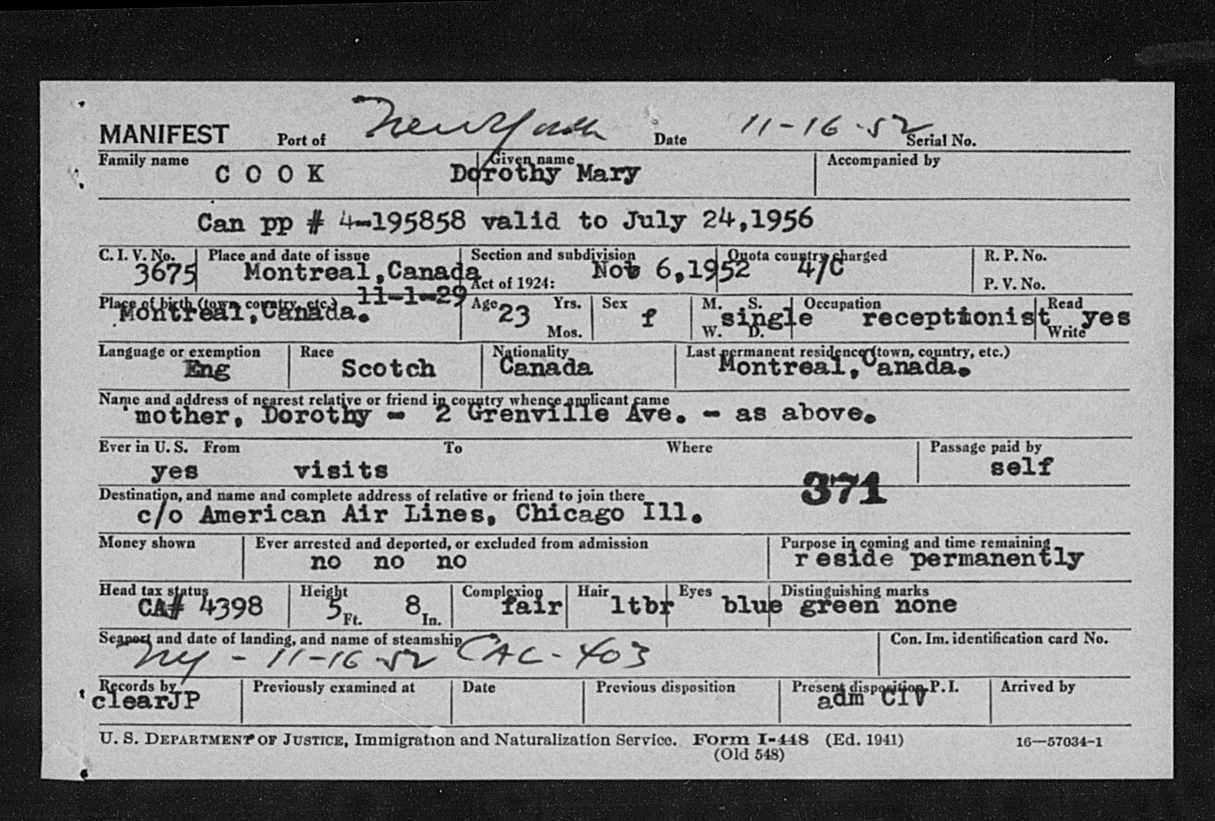 MANIFEST Port of New York Date 11-16-52 Serial No.
Family name Given name Accompanied by
C O O K Dorothy Mary
Can pp # 4-195858 valid to July 24,1956
C. I. V. No. Place and date of issue Section and subdivision Quota country charged R. P. No.
3675 Montreal,Canada Nov 6,1952 4/C
Act of 1924: P. V. No.
Place of birth (town, country, etc.) 11-1-29 Age Yrs. Sex M. S. Occupation Read
Montreal,Canada. 23 f single receptionist yes
Mos. W. D. Write
Language or exemption Race Nationality Last permanent residence (town, country, etc.)
Eng Scotch Canada Montreal,Canada.
Name and address of nearest relative or friend in country whence applicant came
mother, Dorothy - 2 Grenville Ave. - as above.
Ever in U. S. From To Where Passage paid by
yes visits self
371
Destination, and name and complete address of relative or friend to join there
c/o American Air Lines, Chicago Ill.
Money shown Ever arrested and deported, or excluded from admission Purpose in coming and time remaining
no no no reside permanently
Head tax status Height Complexion Hair Eyes Distinguishing marks
CA# 4398 5 Ft. 8 In. fair ltbr blue green none
Seaport and date of landing, and name of steamship Con. Im. identification card No.
NY - 11-16-52 CAC-403
Records by Previously examined at Date Previous disposition Present disposition P. I. Arrived by
clearJP adm CIV
U. S. DEPARTMENT OF JUSTICE, Immigration and Naturalization Service. Form I-448 (Ed. 1941) 16—57034-1
(Old 548)